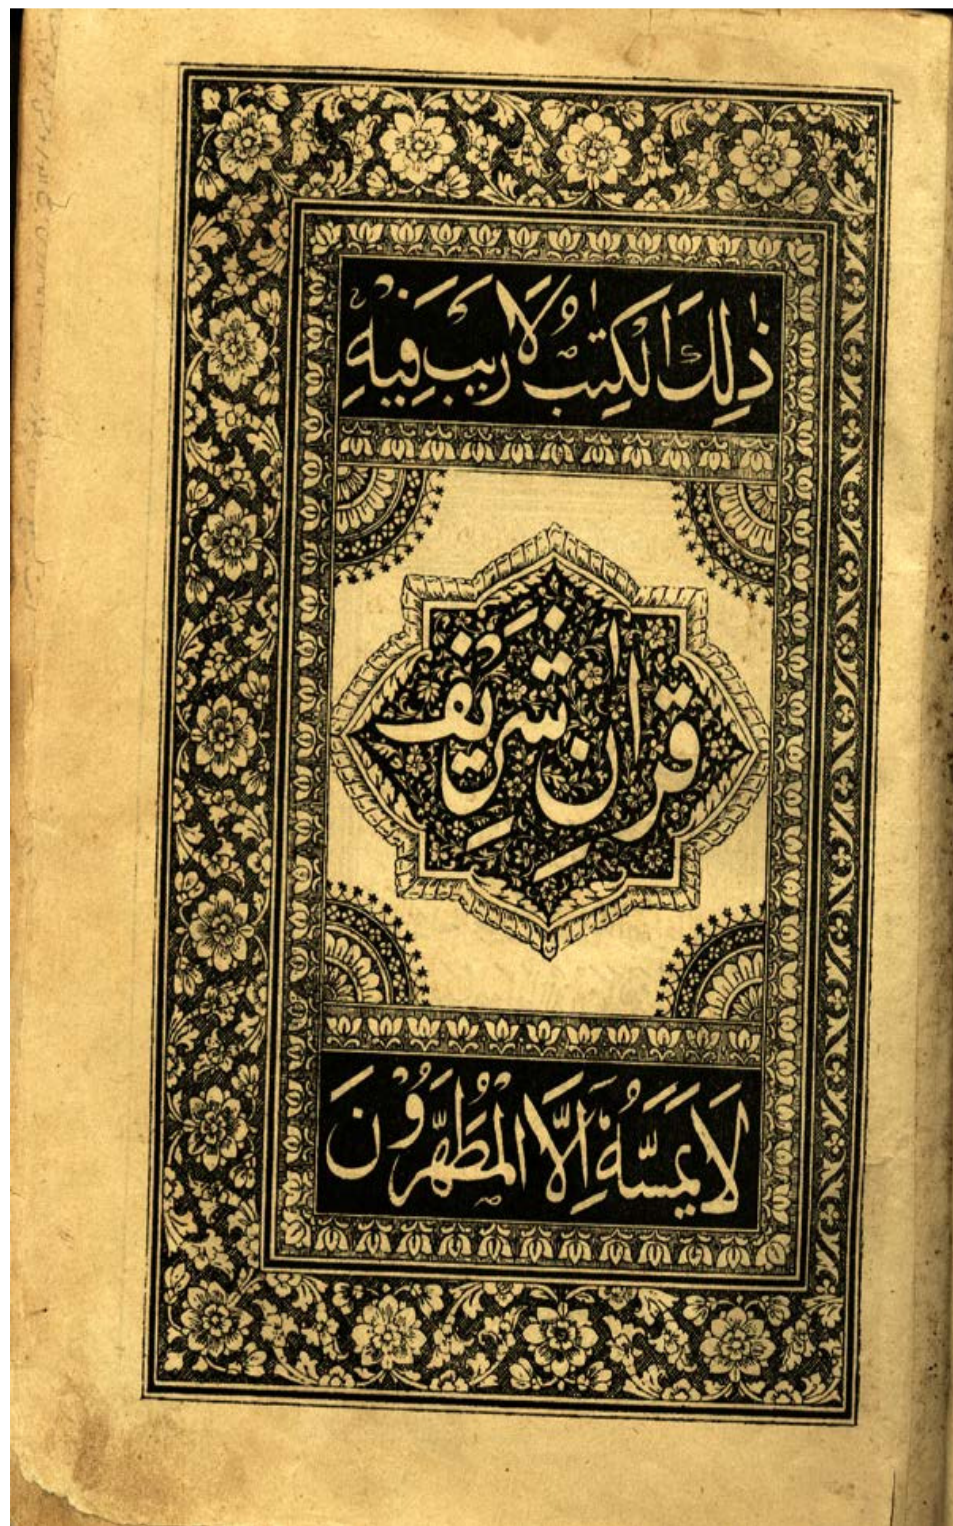 ذٰلِكَ الْكِتٰبُ لَا رَيْبَ فِيْهِ
قُرْاٰنِ شَرِيْف
لَا يَمَسُّهٗ اِلَّا الْمُطَهَّرُوْنَ